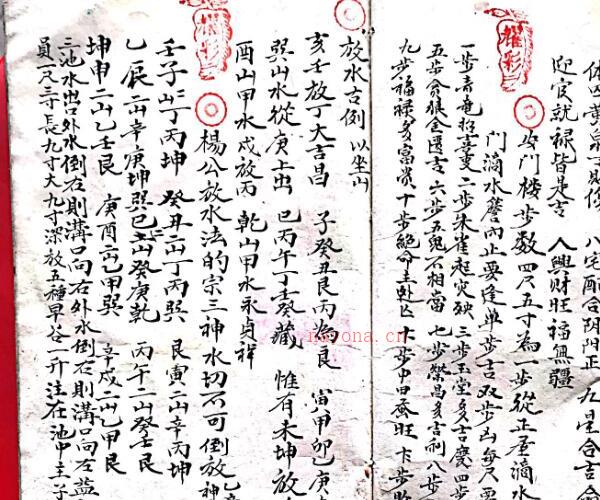 迎官就禄皆是吉 人興财旺福無疆
八宅配合阴阳正 九星合吉
耀彩
門楼步数四尺五寸為一步從正屋滴水
門滴水簷內止要逢单步吉双步凶每尺
一步青竜招喜事二步朱雀起灾殃三步玉堂多吉慶四步
五步 金匮吉六步五鬼不相當七步荣昌多吉利八步
九步福禄多富贵十步绝命
放水吉倒 以坐山
亥壬放丁大吉昌 子癸丑艮丙為良 寅甲卯乙庚
巽山水從庚上出 巳丙午丁壬癸藏 惟有未坤放
酉山甲水戍放丙 乾山甲水永贞祥
耀彩
楊公放水法的宗三神水切不可倒放神
壬子二山丁丙坤 癸丑二山丁丙巽 艮寅二山辛丙坤
乙辰二山辛庚坤 巽巳二山癸庚乾 丙午二山癸壬艮
坤申二山乙壬艮 庚酉二山乙甲巽 辛戍二山乙甲艮
三池水出口外水倒右則溝口向右外水倒右則溝口向左
員一尺三寸長九寸大九寸深放五種早谷一升注在池中
noyona.cn